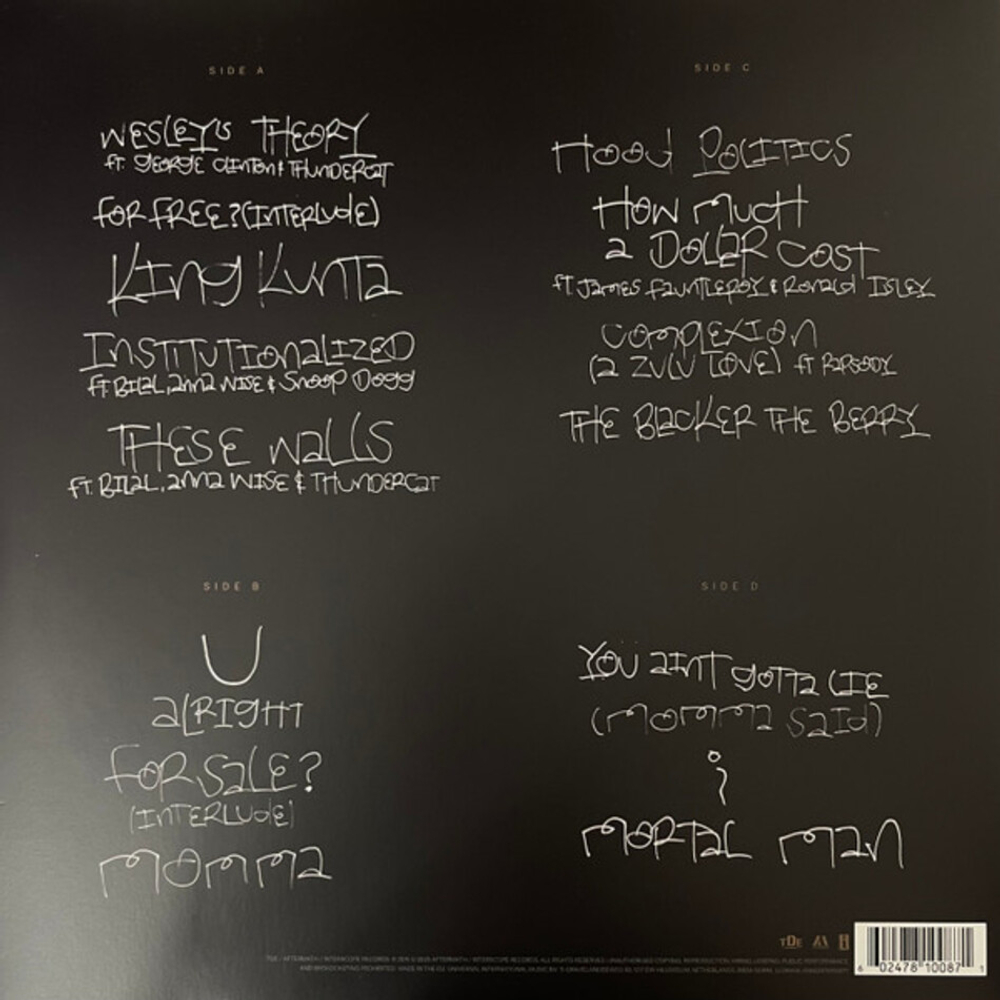 SIDE A
WESLEY'S THEORY
ft. GEORGE CLINTON & THUNDERCAT
FOR FREE? (INTERLUDE)
KING KUNTA
INSTITUTIONALIZED
ft. BILAL, ANNA WISE & SNOOP DOGG
THESE WALLS
ft. BILAL, ANNA WISE & THUNDERCAT
SIDE B
U
ALRIGHT
FOR SALE?
(INTERLUDE)
MOMMA
SIDE C
HOOD POLITICS
HOW MUCH
A DOLLAR COST
ft. JAMES FAUNTLEROY & RONALD ISLEY
COMPLEXION
(A ZULU LOVE) ft RAPSODY
THE BLACKER THE BERRY
SIDE D
YOU AINT GOTTA LIE
(MOMMA SAID)
i
MORTAL MAN
TDE
6 02478 10087 1